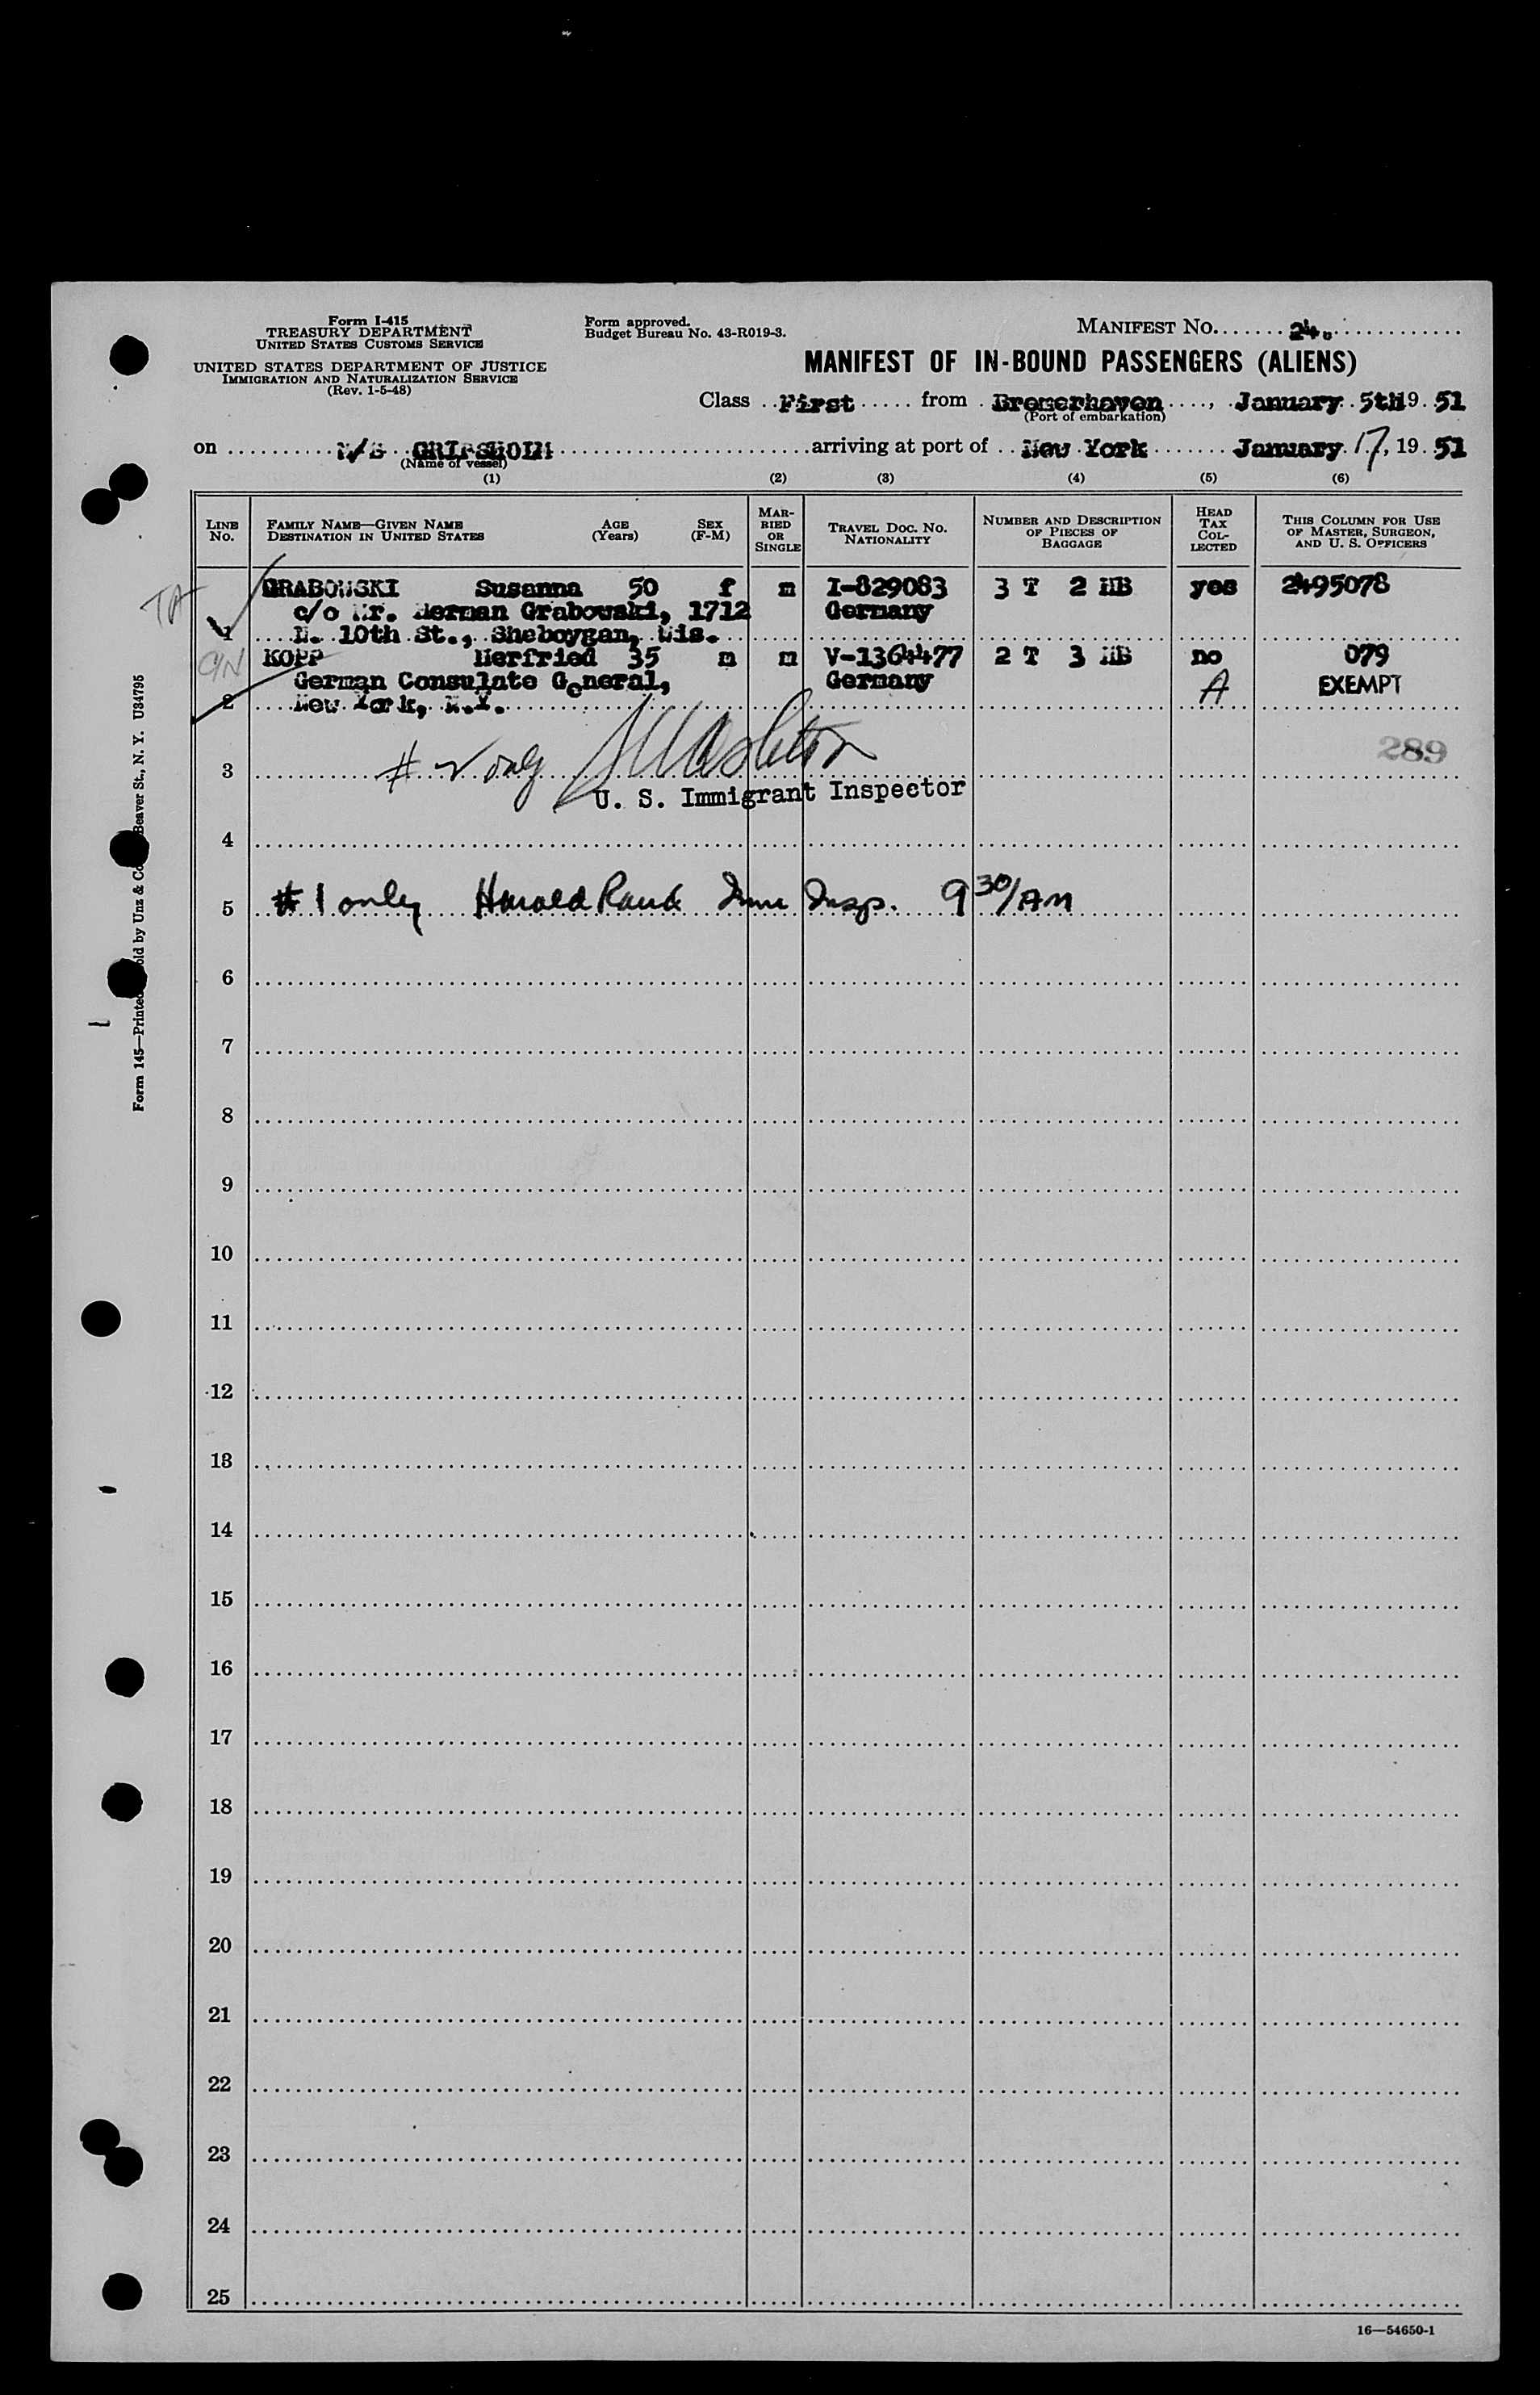 Form I-415
TREASURY DEPARTMENT
UNITED STATES CUSTOMS SERVICE
UNITED STATES DEPARTMENT OF JUSTICE
IMMIGRATION AND NATURALIZATION SERVICE
(Rev. 1-5-48)
Form approved.
Budget Bureau No. 43-R019-3.
MANIFEST NO. 24.
MANIFEST OF IN-BOUND PASSENGERS (ALIENS)
Class First from Bremerhaven, January 5th 19 51
(Port of embarkation)
on M/S GRIPSHOLM arriving at port of New York January 17, 19 51
(Name of vessel)
(1) (2) (3) (4) (5) (6)
LINE NO. FAMILY NAME—GIVEN NAME DESTINATION IN UNITED STATES AGE (Years) SEX (F-M) MARRIED OR SINGLE TRAVEL DOC. NO. NATIONALITY NUMBER AND DESCRIPTION OF PIECES OF BAGGAGE HEAD TAX COLLECTED THIS COLUMN FOR USE OF MASTER, SURGEON, AND U. S. OFFICERS
TA GRABOWSKI Susanna 50 f m I-829083 3 T 2 HB yes 2495078
c/o Mr. Herman Grabowski, 1712 Germany
1 N. 10th St., Sheboygan, Wis.
C/N KOPP Herfried 35 m m V-1364477 2 T 3 HB no 079
German Consulate General, Germany A EXEMPT
2 New York, N.Y.
289
3 # 2 only
U. S. Immigrant Inspector
4
5 # 1 only Harold Rand Imm Insp. 9 30/AM
6
7
8
9
10
11
12
13
14
15
16
17
18
19
20
21
22
23
24
25
16—54650-1
Form 145—Printed old by Unz & Co Beaver St., N. Y. U34795